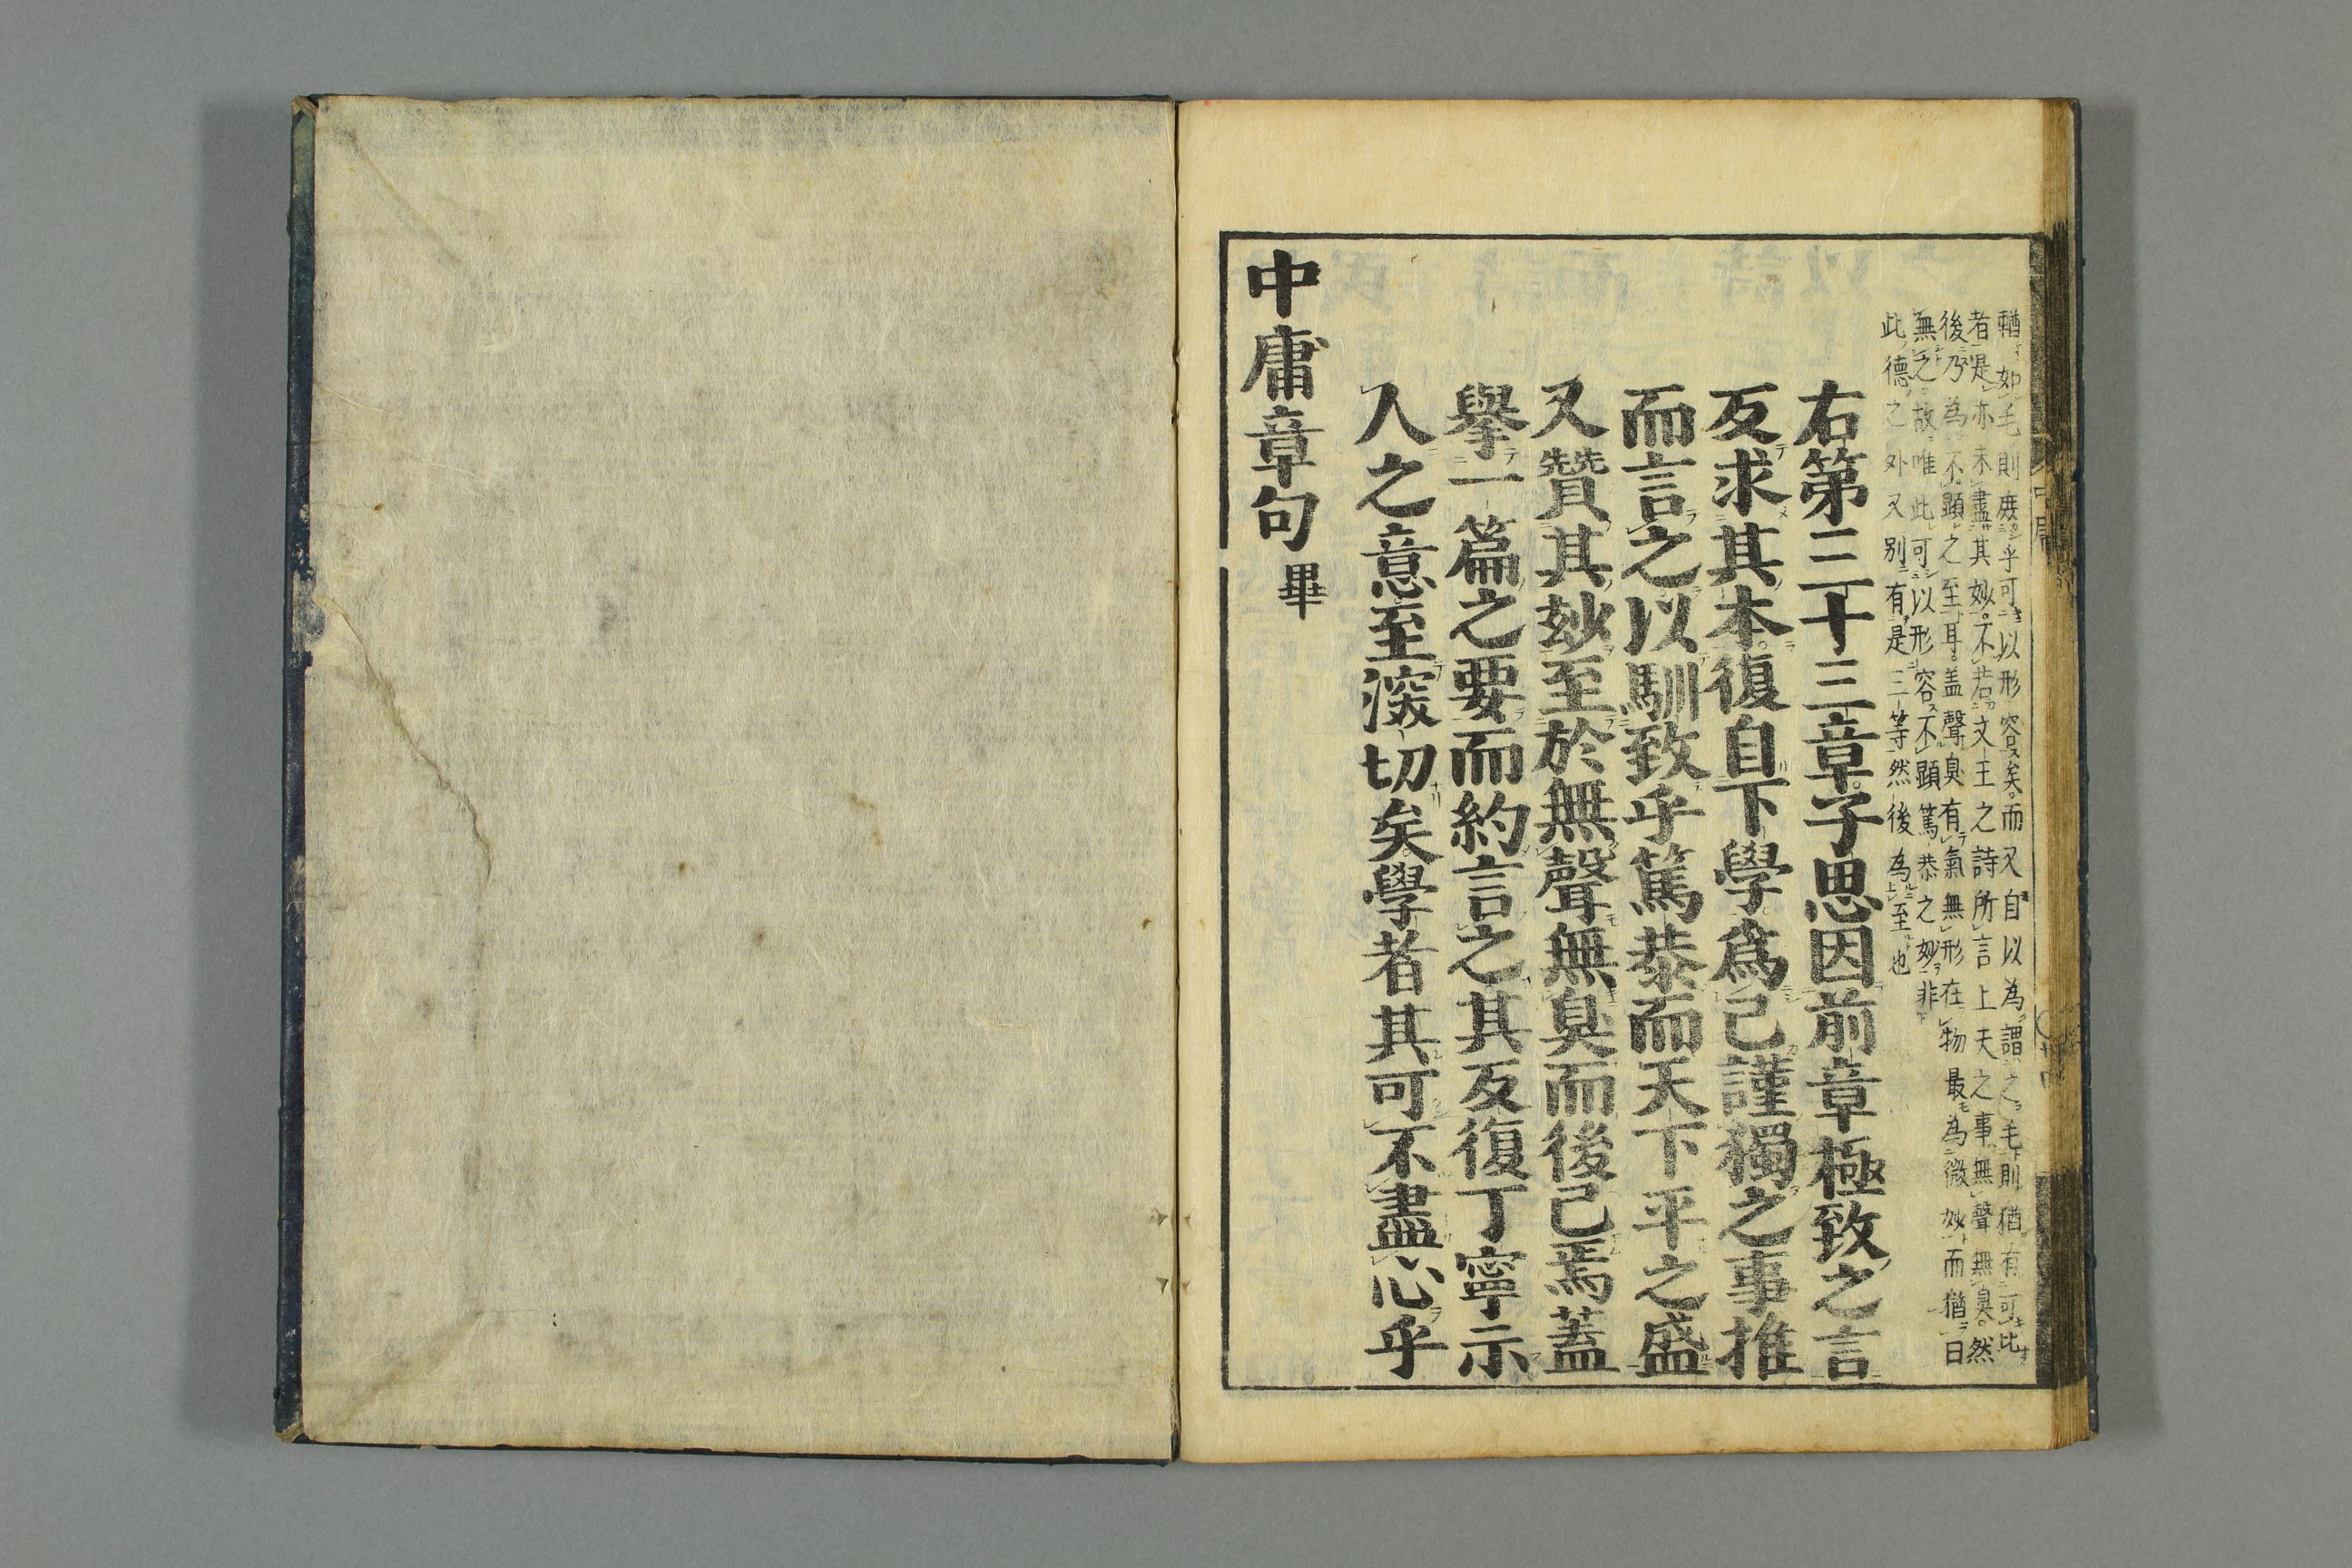 輶如毛則庶乎可以形容矣而又自以為謂之毛則猶有可比
者是亦未盡其妙不若文王之詩所言上天之事無聲無臭然
後乃為不顯之至耳蓋聲臭有氣無形在物最為微妙而猶曰
無之故唯此可以形容不顯篤恭之妙非
此德之外又別有是三等然後為至也
右第三十三章子思因前章極致之言
反求其本復自下學爲己謹獨之事推
而言之以馴致乎篤恭而天下平之盛
又贊其玅至於無聲無臭而後已焉蓋
擧一篇之要而約言之其反復丁寧示
人之意至深切矣學者其可不盡心乎
中庸章句畢